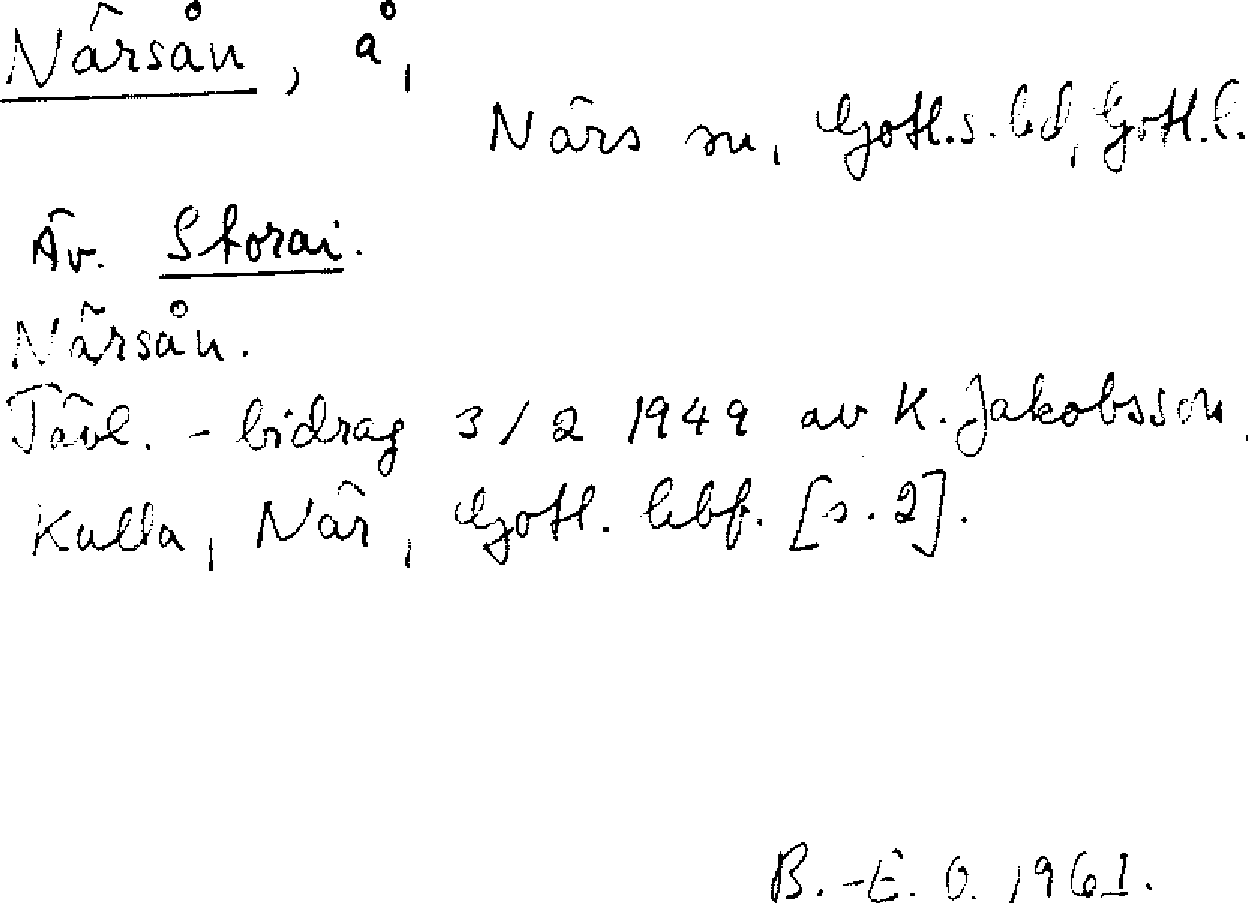 Närsån, å,
Närs sn, Gotl.s. hd, Gotl.l.
Äv. Storai.
Närsån.
Tävl.-bidrag 3/2 1949 av K. Jakobsson,
Kulla, När, Gotl. hbf. [s. 2].
B.-E. O. 1961.